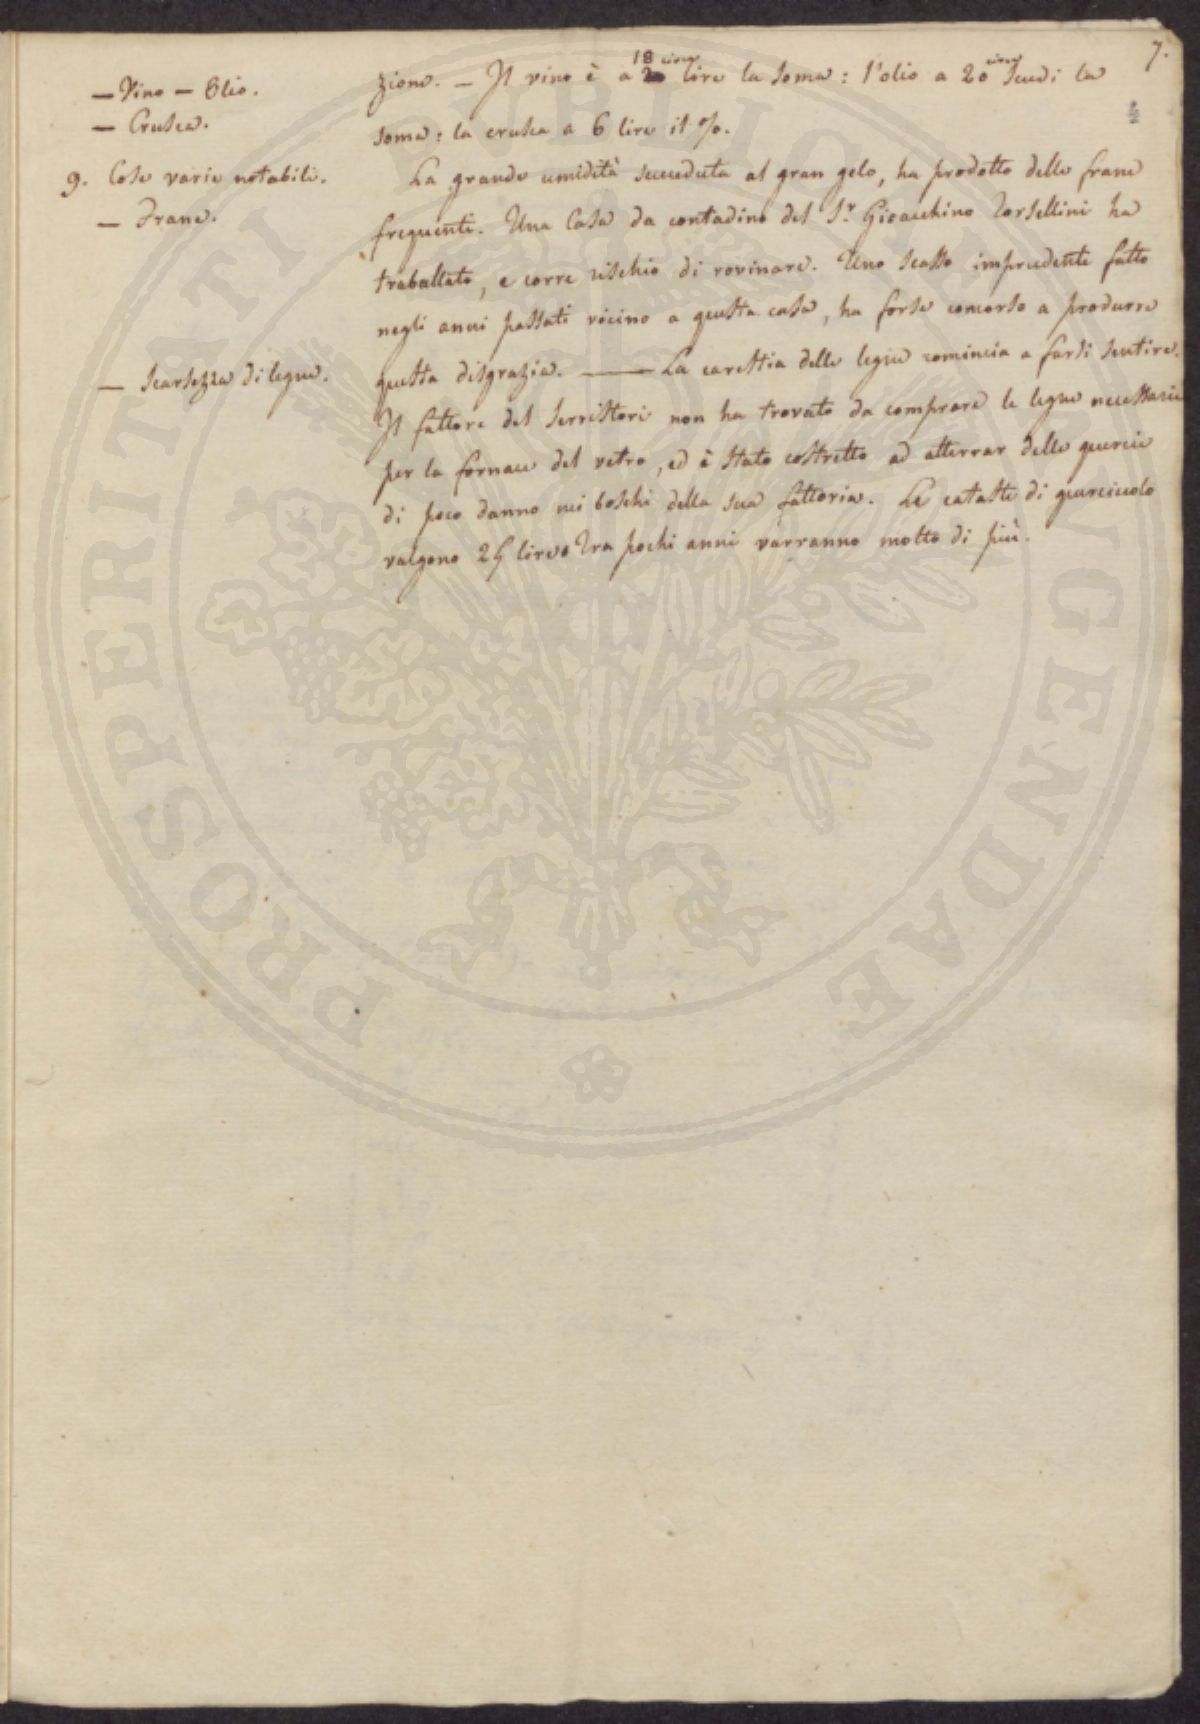 7.
4
— Vino — Olio.
— Crusca.
9. Cose varie notabili.
— Frane.
— Scarsezza di legne.
zione. — Il vino è a 18 circa lire la soma: l'olio a 20 circa scudi la
soma: la crusca a 6 lire il %.
La grande umidità succeduta al gran gelo, ha prodotto delle frane
frequenti. Una Casa da contadino del S.r Gioacchino Torsellini ha
traballato, e corre rischio di rovinare. Uno scasso imprudente fatto
negli anni passati vicino a questa casa, ha forse concorso a produrre
questa disgrazia. — La carestia delle legne comincia a farsi sentire.
Il fattore del Serristori non ha trovato da comprare le legne necessarie
per la fornace del vetro, ed è stato costretto ad atterrar delle quercie
di poco danno nei boschi della sua fattoria. Le cataste di querciuolo
valgono 25 lire. Tra pochi anni varranno molto di più.
PROSPERITATI PUBLICAE AUGENDAE